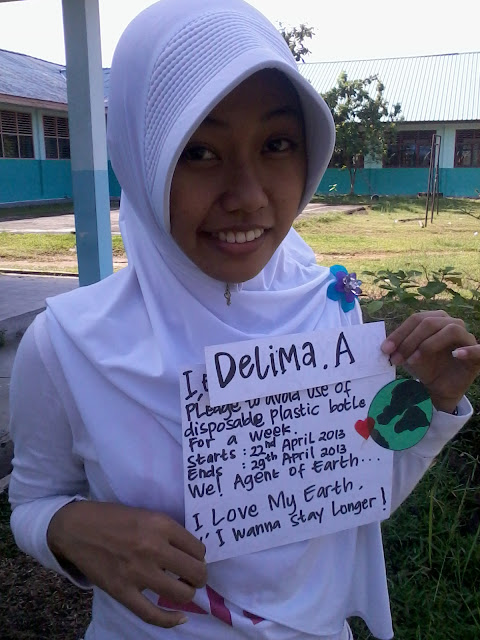 I,
DELIMA. A
PLEASE to avoid use of
disposable plastic botle
For a week.
Starts : 22nd April 2013
Ends : 29th April 2013
We! Agent of Earth...
I Love My Earth,
" I wanna stay Longer !